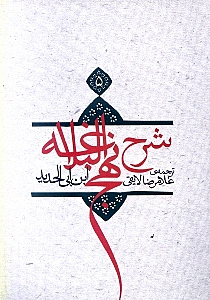 ۵
شرح
نهج البلاغه
ابن ابی الحدید
ترجمه‌ی
غلامرضا لایقی